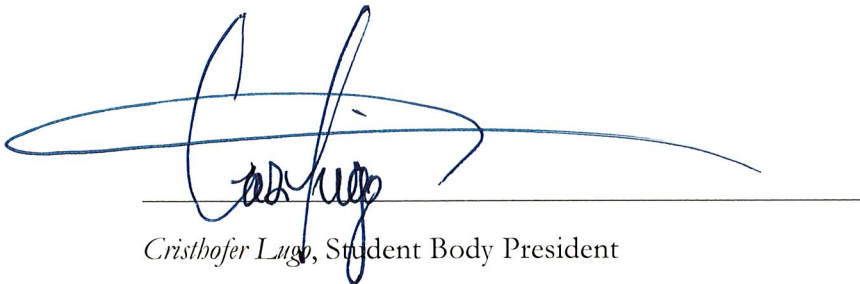 Cristhofer Lugo, Student Body President